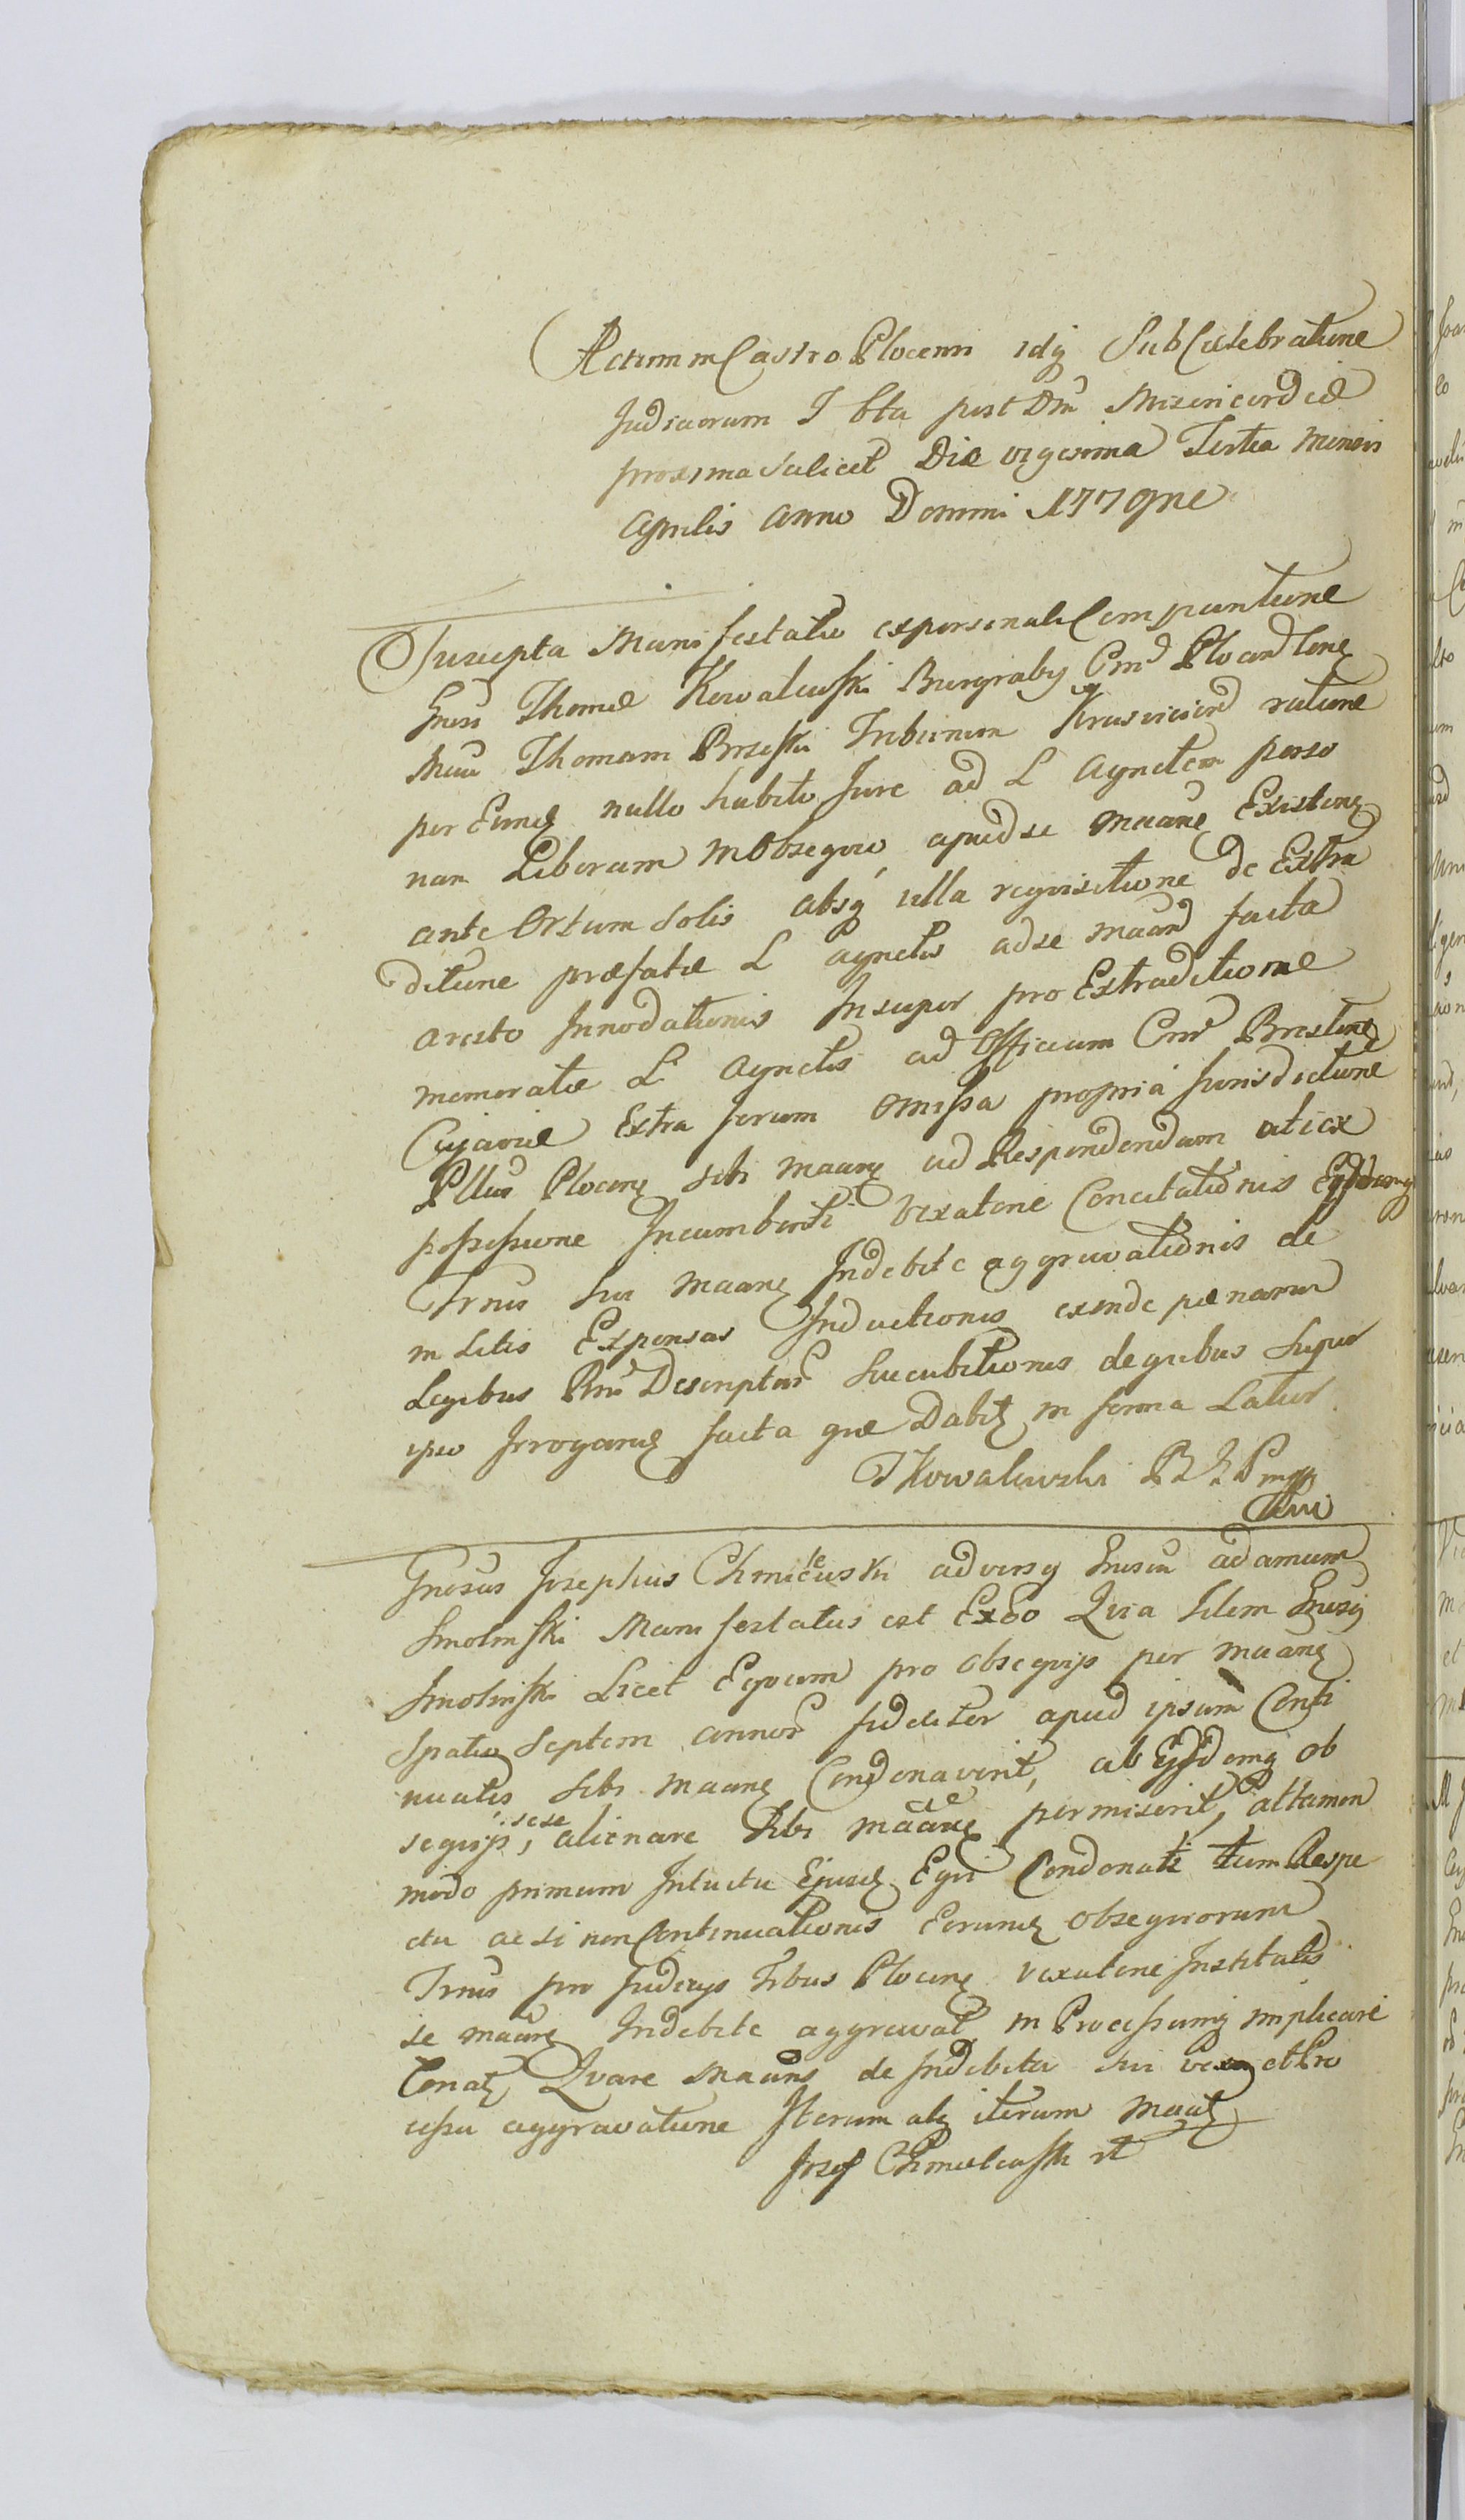 Actum in Castro Plocensi idq Sub Celebratione
Judiciorum F bta post Dm̃ Misericordiæ
proxima scilicet Die vigesima Tertia Mensis
Aprilis Anno Domini 1779ne
Suscepta Manifestatio ex personali Comparitione
Gnosi Thomæ Kowalewski Burgraby Cm̃d Plocen͠d Conq̃
Mcum Thomam Brzeski Tribunum Krusvicien͠d ratione
per Eund̃ nullo habito Jure ad L Agnetem perso
nam Liberam in Obsequio apud se Maanẽ Existenq̃
ante Ortum Solis absq ulla requisitione de Extra
ditione præfatæ L Agnetis ad se Maan͠d facta
aresto Innodationis Insuper pro Extraditione
memoratæ L Agnetis ad Officium Cm̃r Brestenq̃
Cujaviæ Extra forum omissa propria Jurisdictione
Pllus Plocenq̃ sibi Maanq̃ ad Respondendum uti ex
possessione Incumbenti Vexatione Concitationis Ejusdemq
Trnus sui Maanq̃ Indebite aggravationis de
in Litis Expensas Inductionis exinde pœnarum
Legibus Rni Descriptar̃ Succubitionis de quibus super
ipso Irrogand̃ facta quæ Dabit̃ in forma Latius
TKowalewski B G P mpp
Gnosus Josephus Chmielewski adversq Gnosum Adamum
Smolinski Manifestatus est Exeo Quia Idem Gnosq
Smolinski Licet Equum pro obsequijs per Maanẽ
Spatio Septem annor̃ fideliter apud ipsum Conti
nuatis sibi Maanq̃ Condonaverit, ab Ejusdemq ob
sequijs, sese alienare sibi Maanẽ permiserit, attamen
modo primum Intuitu Ejusd̃ Equi Condonati tum Respe
ctu ac si non Continuationis Eorund̃ Obsequiorum
Trnus pro Judicijs Trbus Plocenq̃ vexatione Instituta
se Maanẽ Indebite aggravat in Processumq implicare
Conat̃ Quare Maans de Indebita sui vexaq̃ et Pro
cessu aggravatione Iterum atq iterum Maat̃
Jozef Chmielewski st